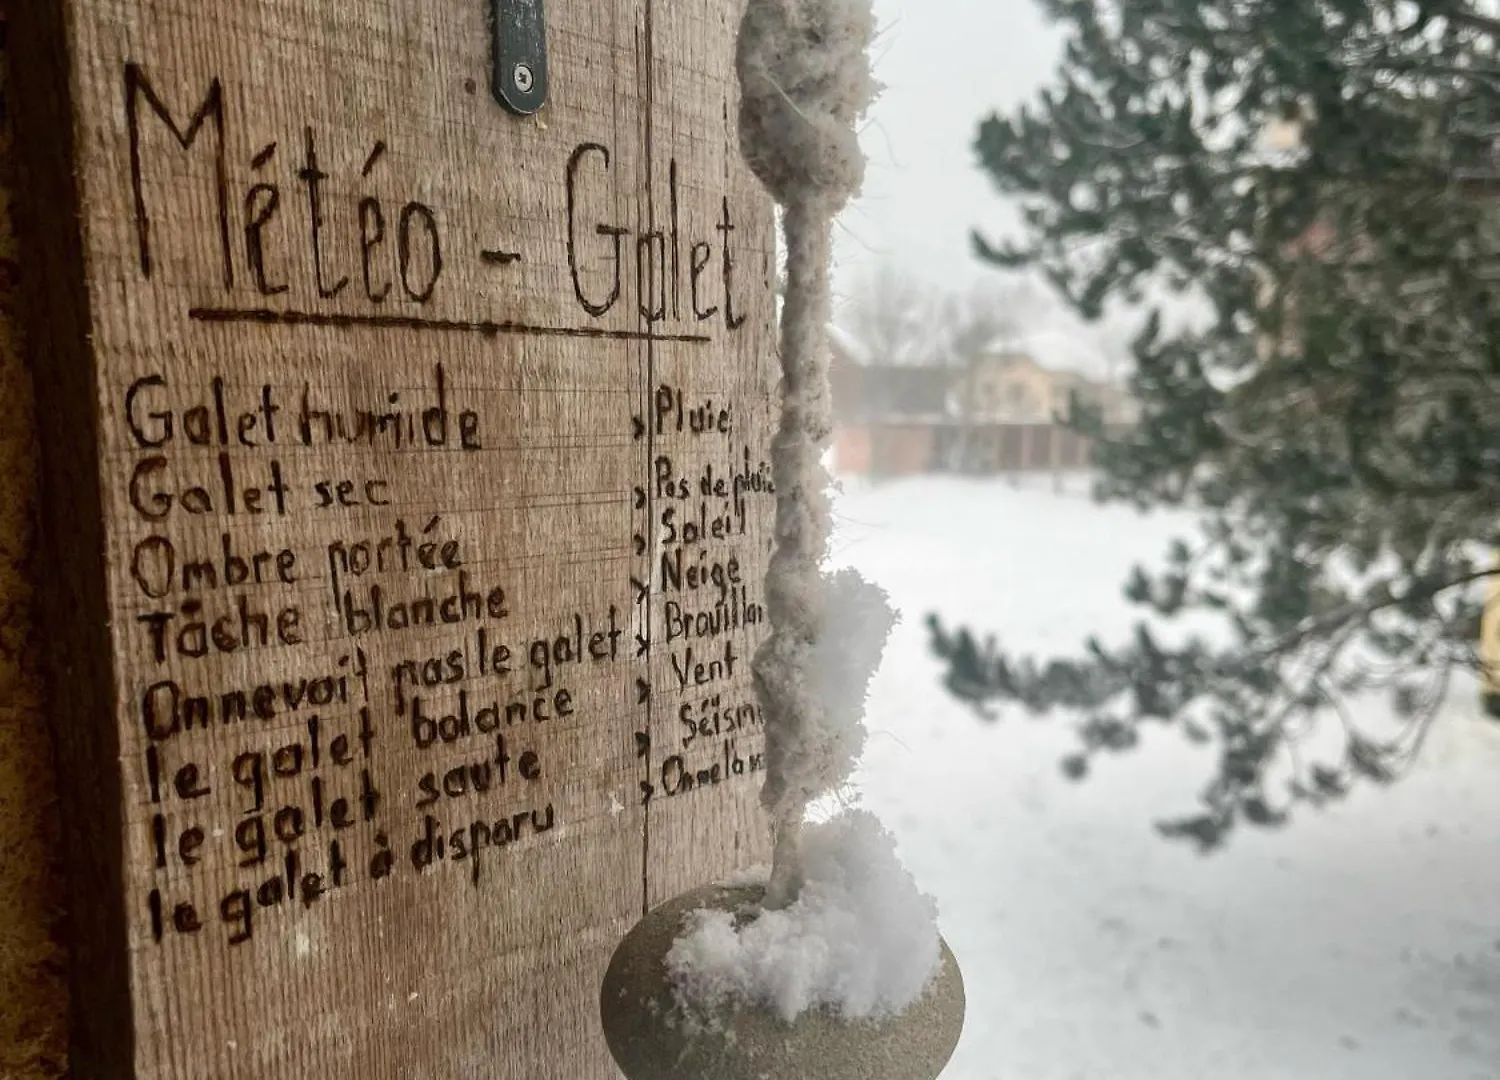 Météo - Galet
Galet humide > Pluie
Galet sec > Pas de pluie
Ombre portée > Soleil
Tâche blanche > Neige
On ne voit pas le galet > Brouillar
le galet balance > Vent
le galet saute > Séism
le galet à disparu >